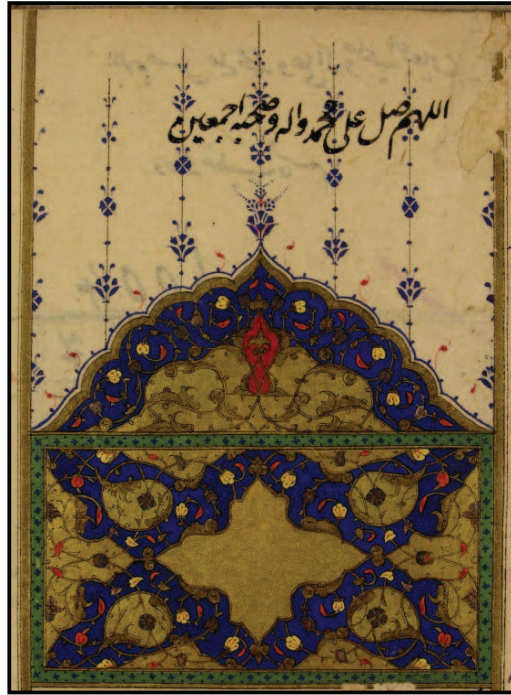 اللهم صل علی محمد واله وصحبه اجمعین